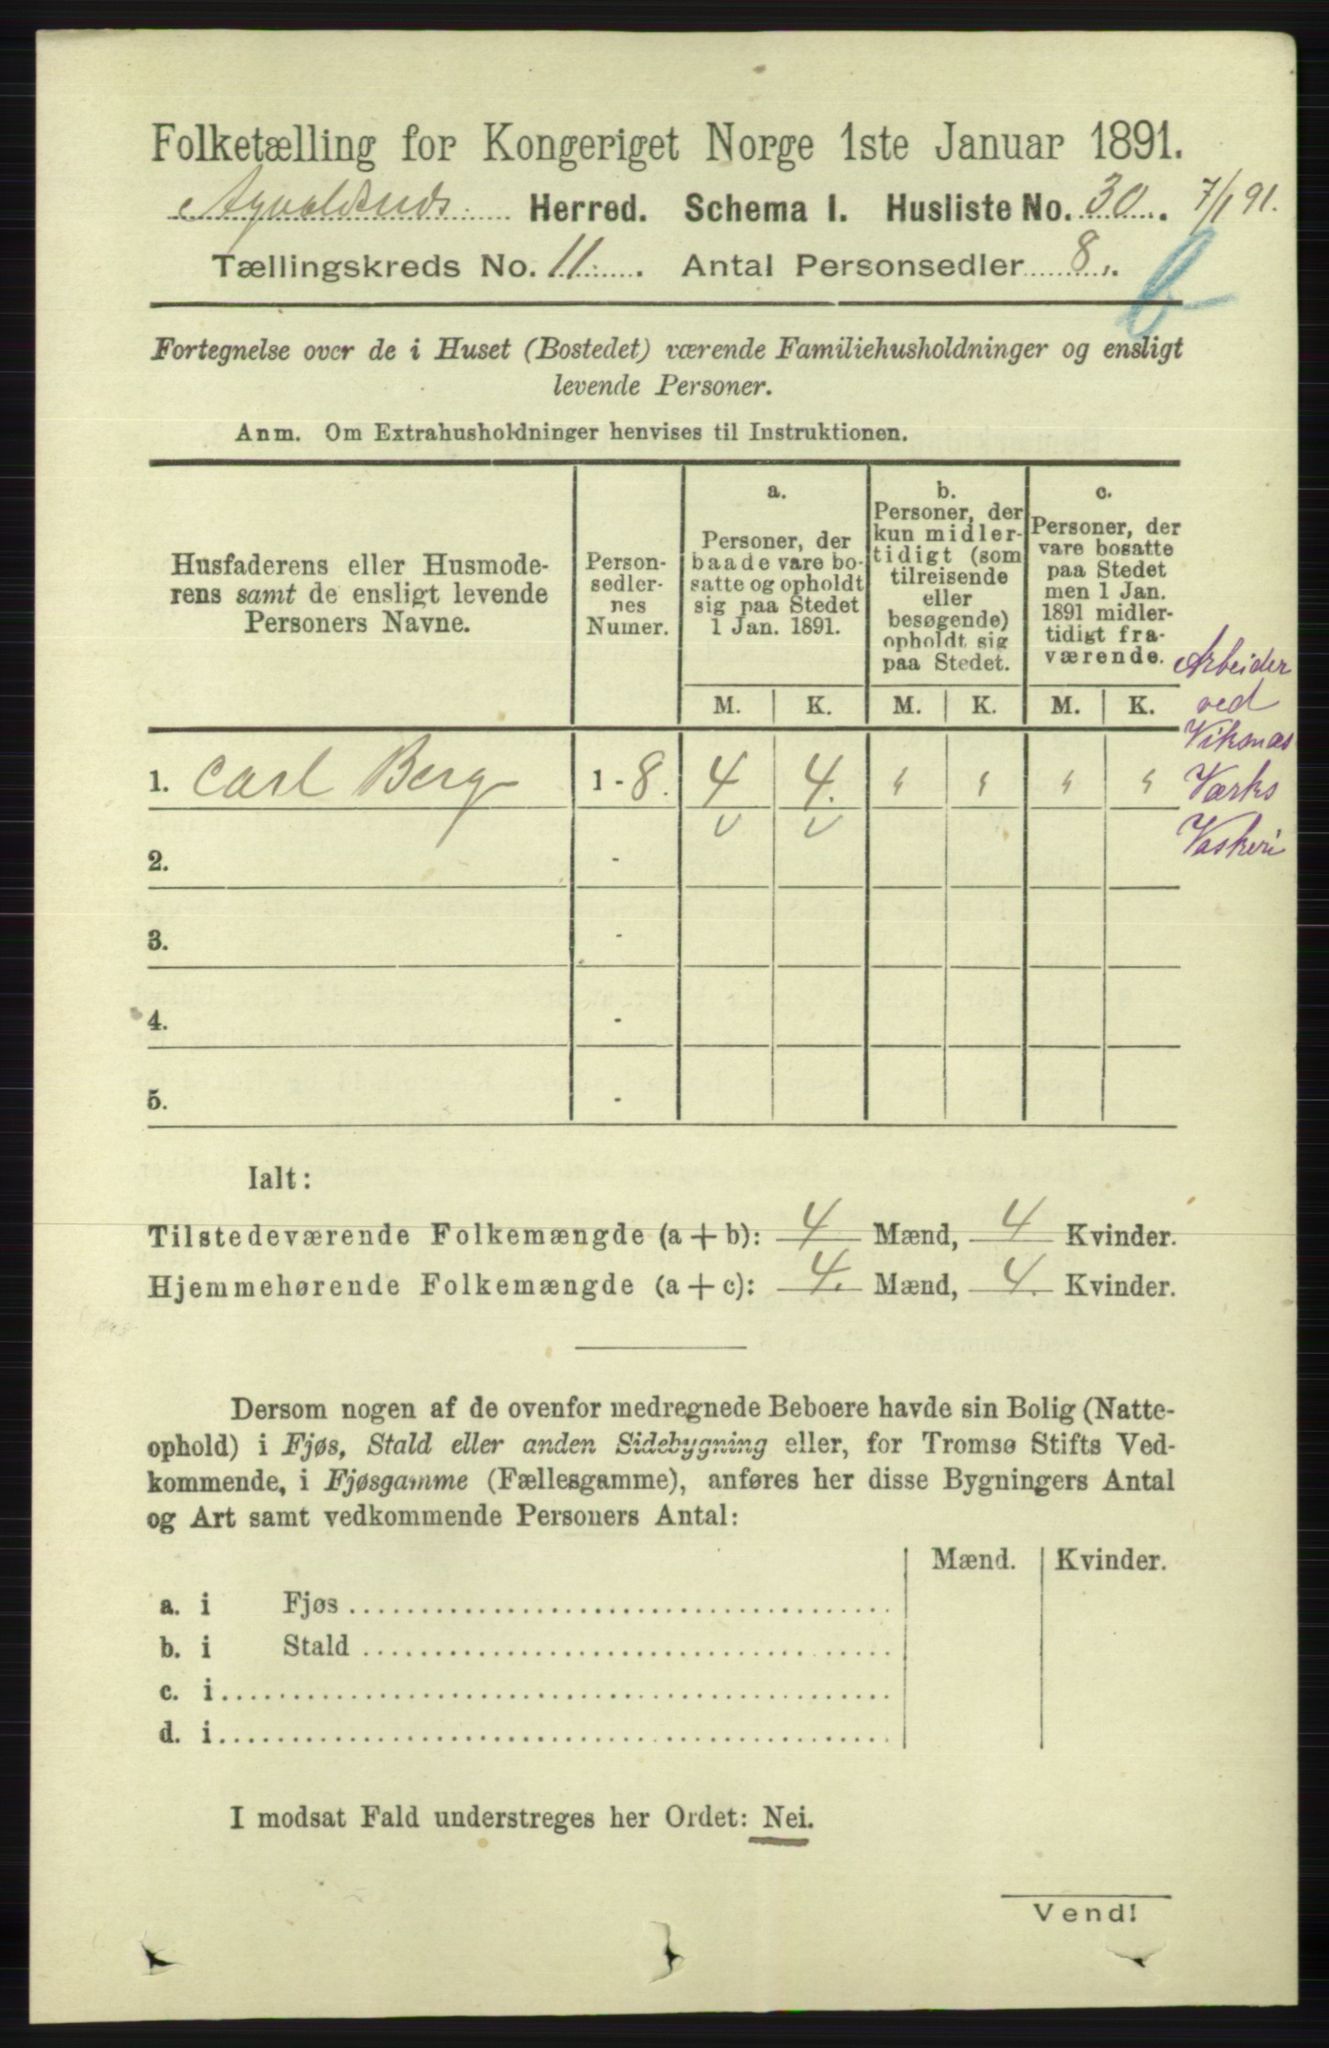 Folketælling for Kongeriget Norge 1ste Januar 1891.
Avnaldsnes Herred. Schema I. Husliste No. 30. 7/1 91.
Tællingskreds No. 11. Antal Personsedler 8.
b
Fortegnelse over de i Huset (Bostedet) værende Familiehusholdninger og ensligt
levende Personer.
Anm. Om Extrahusholdninger henvises til Instruktionen.
Husfaderens eller Husmode-
rens samt de ensligt levende
Personers Navne.
Person-
sedler-
nes
Numer.
a.
Personer, der
baade vare bo-
satte og opholdt
sig paa Stedet
1 Jan. 1891.
b.
Personer, der
kun midler-
tidigt (som
tilreisende
eller
besøgende)
opholdt sig
paa Stedet.
c.
Personer, der
vare bosatte
paa Stedet
men 1 Jan.
1891 midler-
tidigt fra-
værende.
M. K. M. K. M. K.
Arbeider
ved
Viksnæs
Værks
Vaskeri
1. Carl Berg 1-8. 4 4. " " " "
v v
2. -
3. -
4. -
5. -
Ialt:
Tilstedeværende Folkemængde (a + b): 4 Mænd, 4 Kvinder.
Hjemmehørende Folkemængde (a + c): 4. Mænd, 4. Kvinder.
Dersom nogen af de ovenfor medregnede Beboere havde sin Bolig (Natte-
ophold) i Fjøs, Stald eller anden Sidebygning eller, for Tromsø Stifts Ved-
kommende, i Fjøsgamme (Fællesgamme), anføres her disse Bygningers Antal
og Art samt vedkommende Personers Antal:
Mænd. Kvinder.
a. i Fjøs
b. i Stald
c. i
d. i
I modsat Fald understreges her Ordet: Nei.
Vend!